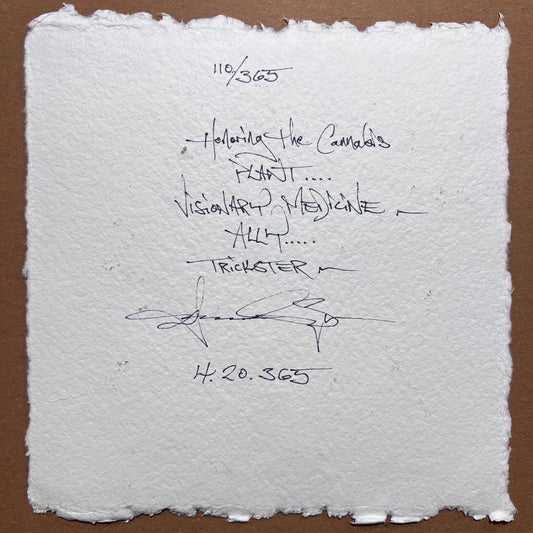 110/365
Honoring the Cannabis
PLANT....
VISIONARY MEDICINE ~
ALLY.....
TRICKSTER ~
4.20.365